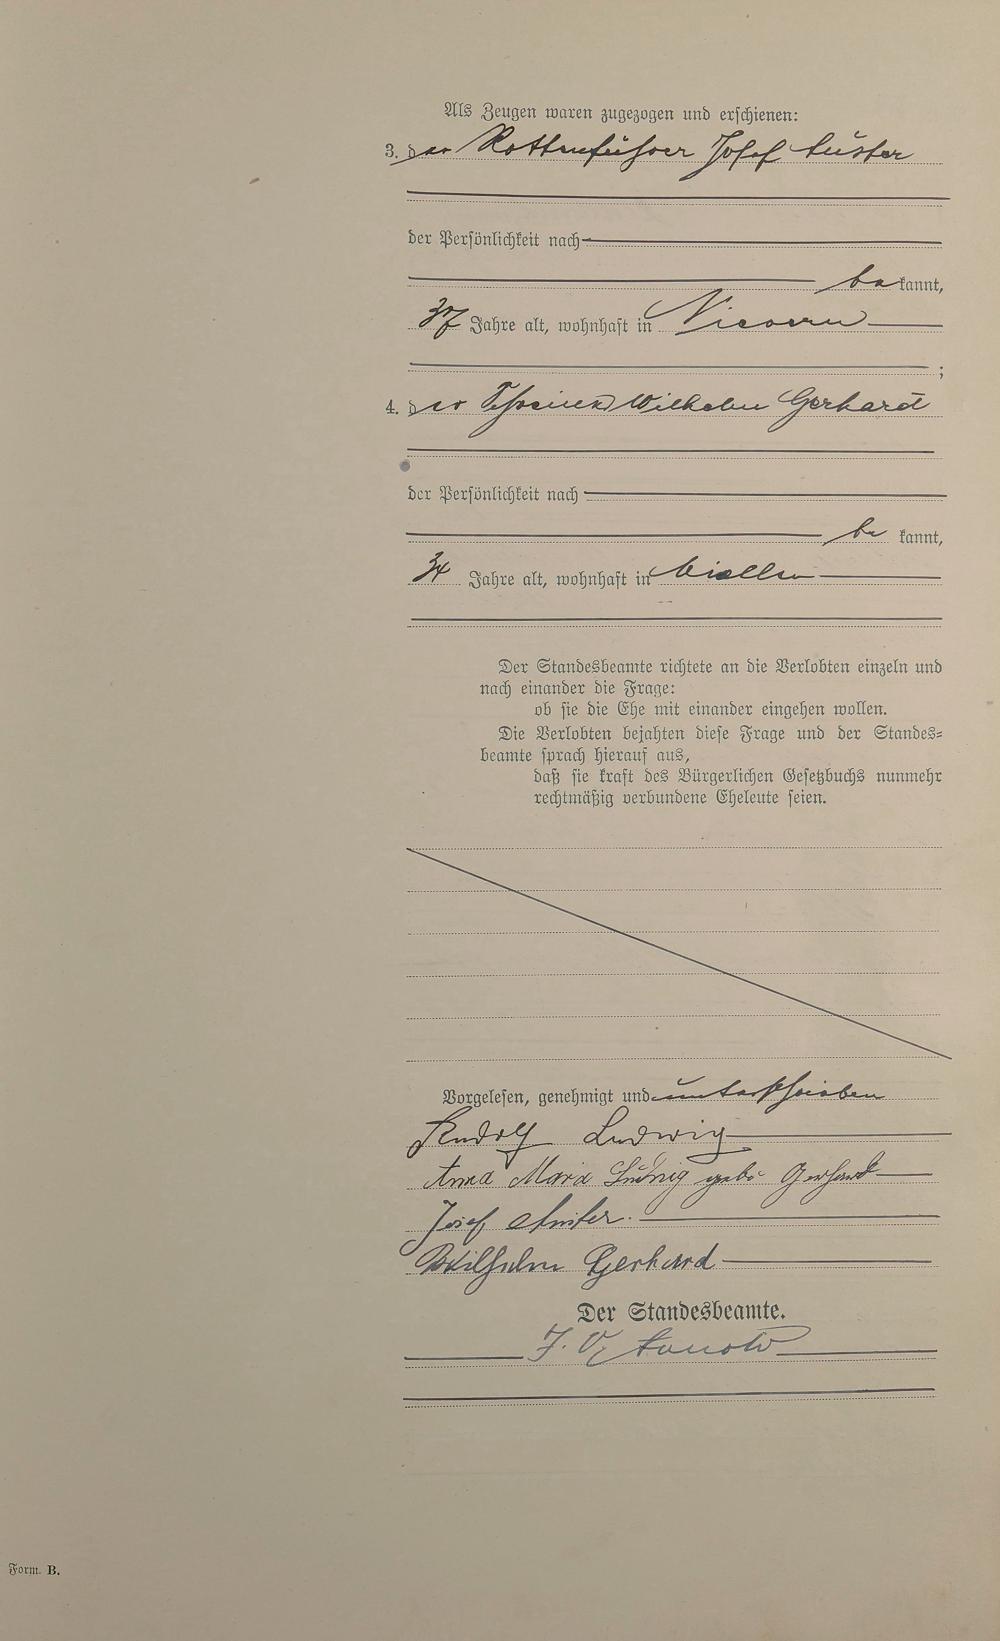 Als Zeugen waren zugezogen und erschienen:
3. der Rottenführer Josef
der Persönlichkeit nach
be kannt,
37 Jahre alt, wohnhaft in Nievern
;
4. der Wilhelm Gerhard
der Persönlichkeit nach
be kannt,
34 Jahre alt, wohnhaft in
Der Standesbeamte richtete an die Verlobten einzeln und
nach einander die Frage:
ob sie die Ehe mit einander eingehen wollen.
Die Verlobten bejahten diese Frage und der Standes=
beamte sprach hierauf aus,
daß sie kraft des Bürgerlichen Gesetzbuchs nunmehr
rechtmäßig verbundene Eheleute seien.
Vorgelesen, genehmigt und unterschrieben
Rudolf Ludwig
Anna Maria Ludwig geb. Gerhard
Josef
Wilhelm Gerhard
Der Standesbeamte.
J. V.
Form. B.